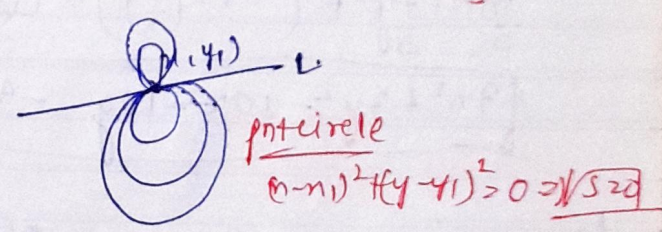 (y₁) L.
pnt circle
(x-x₁)²+(y-y₁)²=0 ⇒ S=0